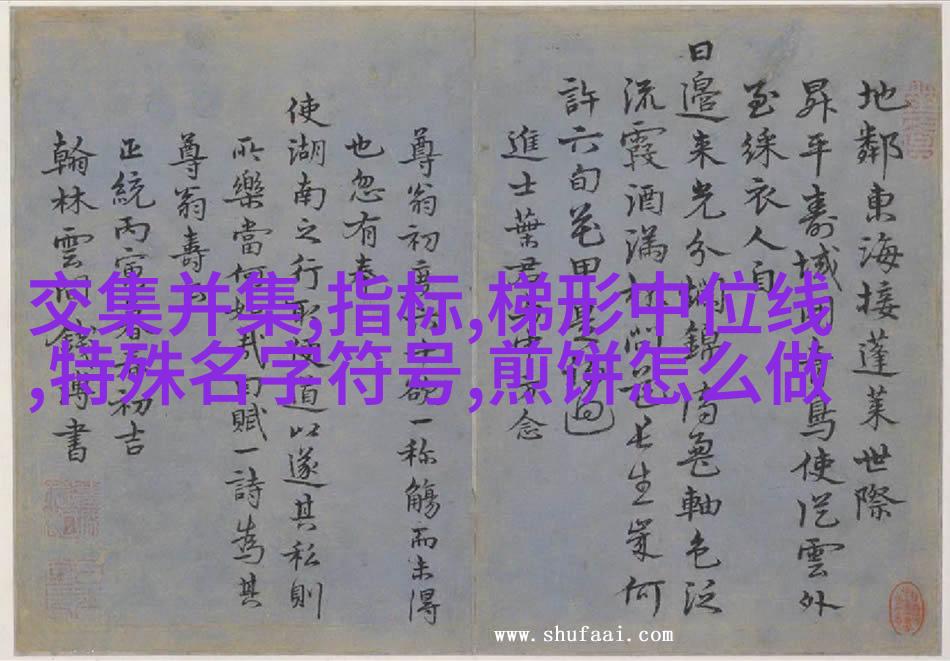 地鄰東海接蓬萊世際
昇平壽域鳥使從雲外
至綵衣人自
日邊來光分錦軸色泛
流霞酒滿長生歲何
許六旬花甲過
進士葉君念
尊翁初欲一称觴而未得
也忽有奉
使湖南之行道以遂其私則
所樂當何如賦一詩為其
尊翁壽
正統丙寅春初吉
翰林雲書
交集并集,指标,梯形中位线
,特殊名字符号,煎饼怎么做
www.shufaai.com